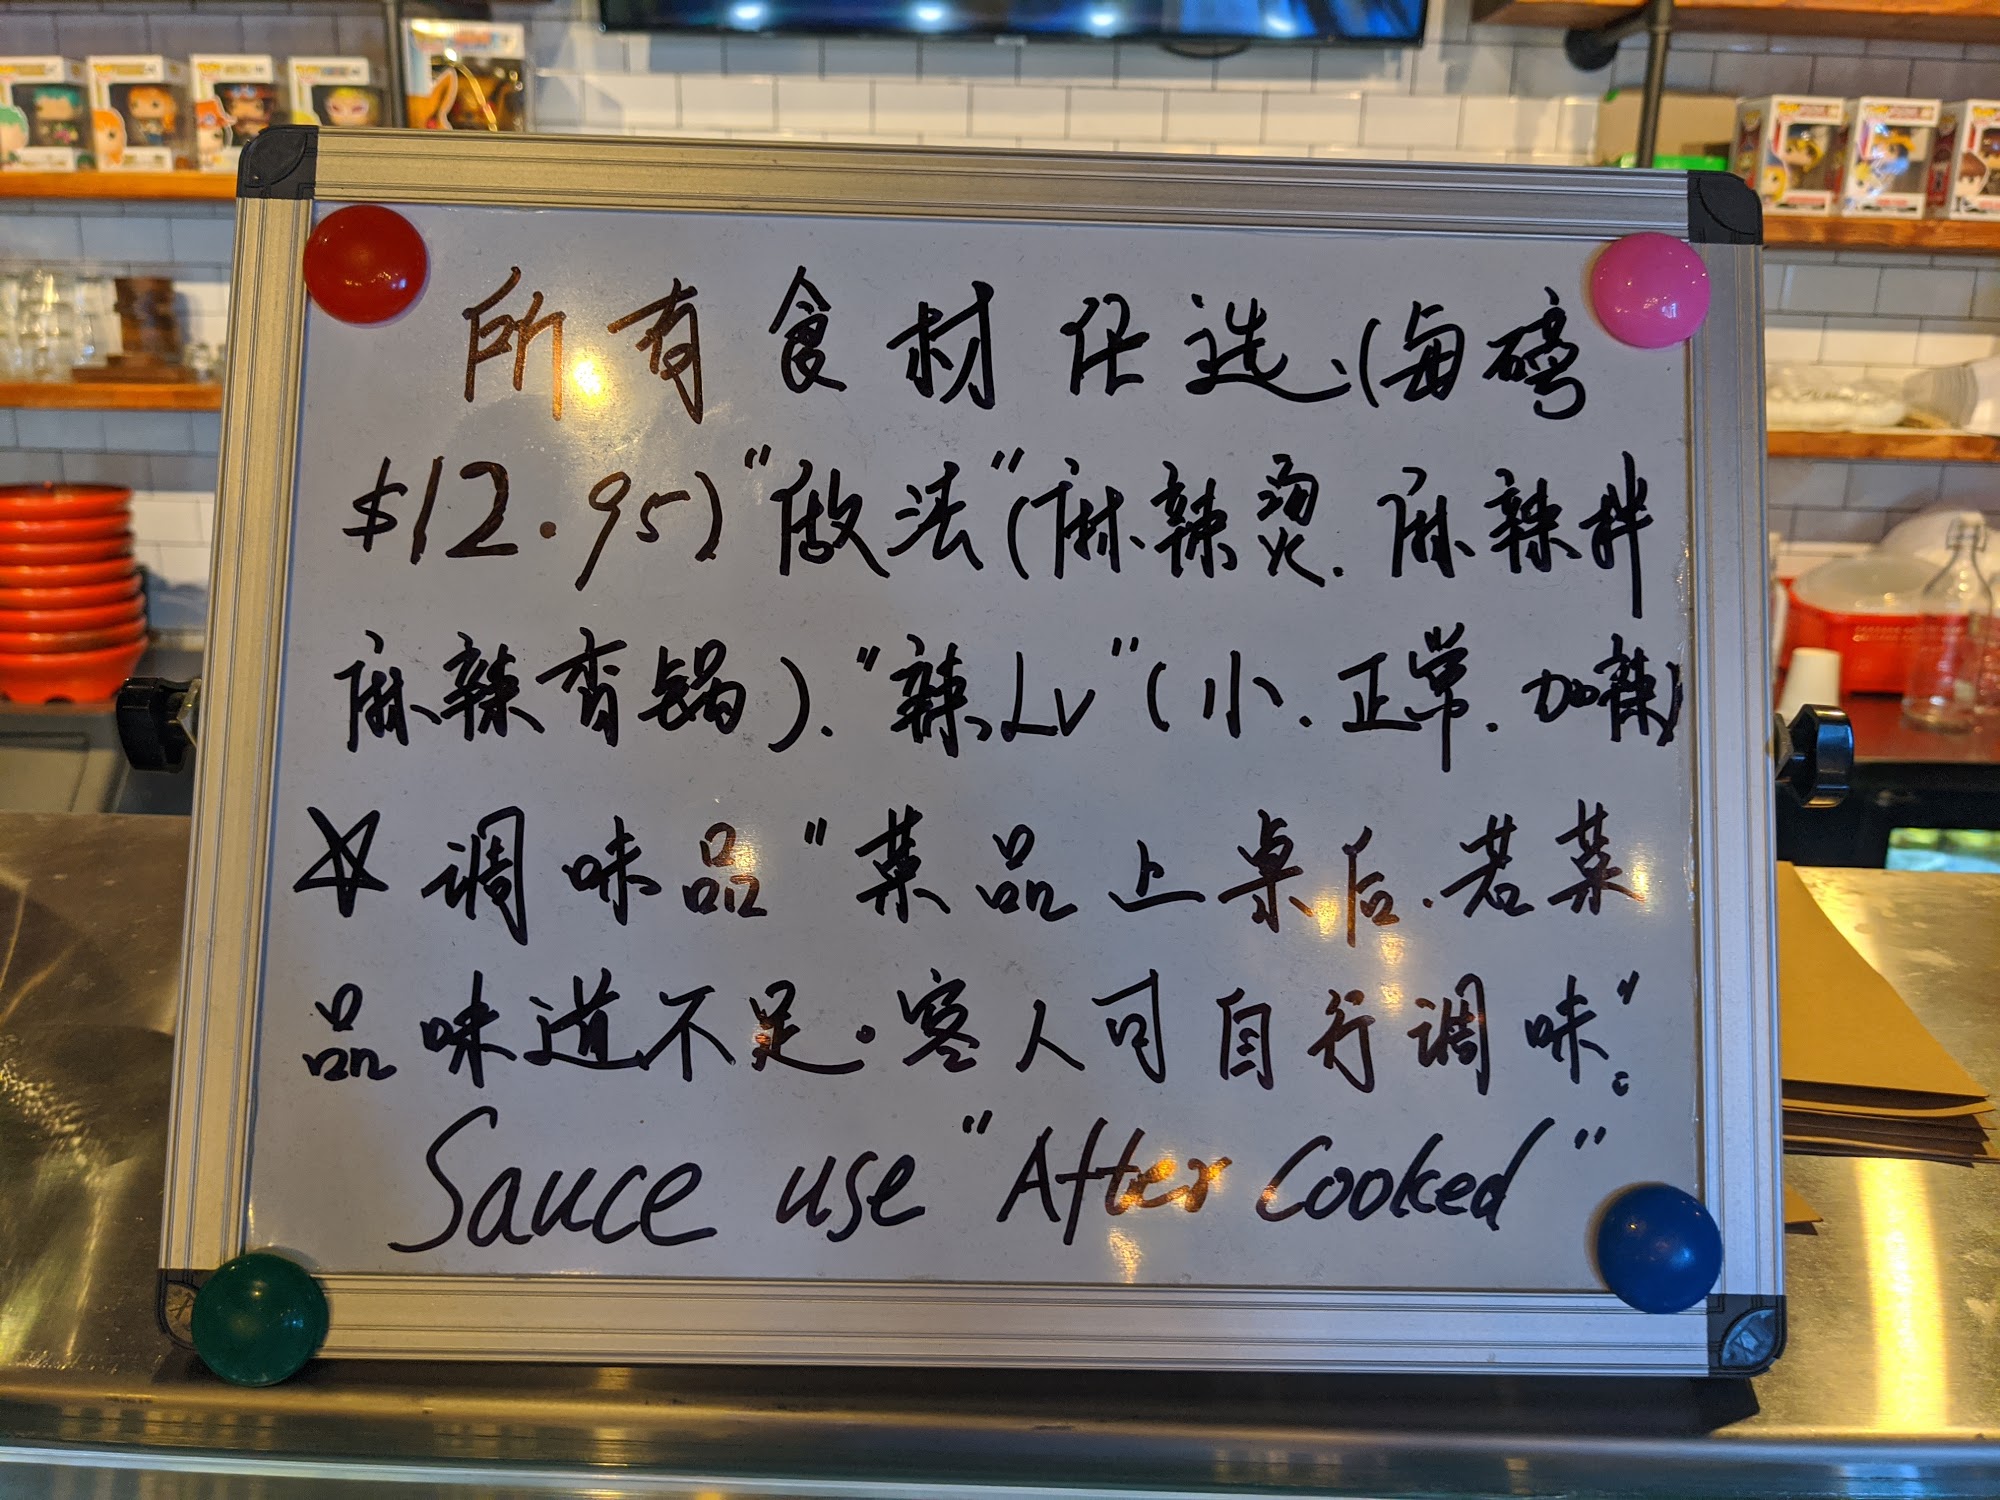 所有食材任选.(每磅
$12.95)"做法"(麻辣烫.麻辣拌
麻辣香锅)."辣Lv"(小.正常.加辣)
☆调味品"菜品上桌后.若菜
品味道不足.客人可自行调味"。
Sauce use "After Cooked"